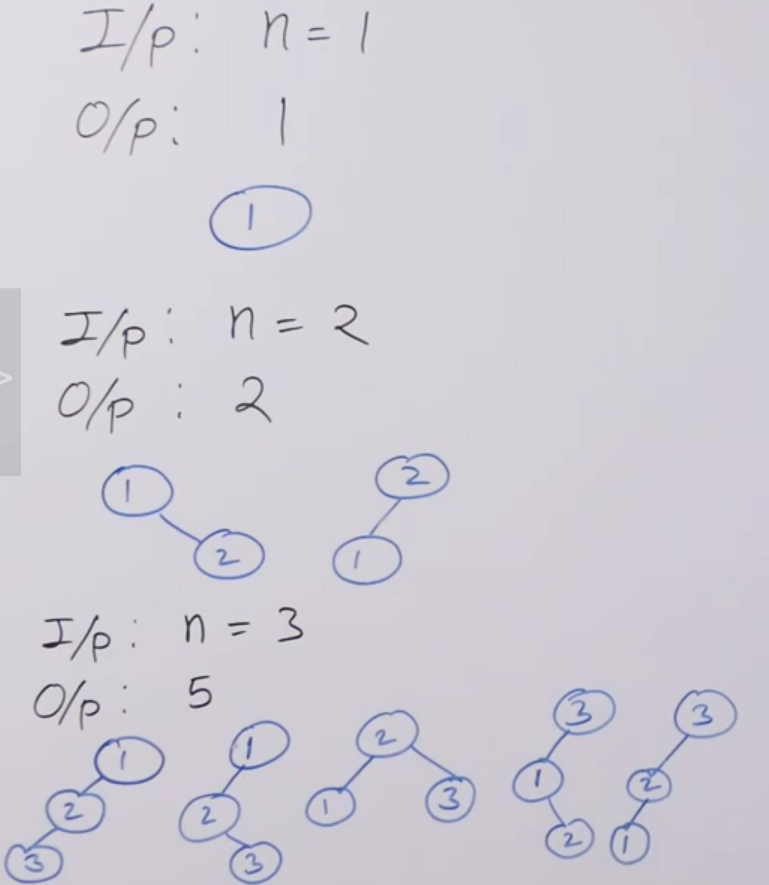 I/p: n = 1
O/p: 1
1
I/p: n = 2
O/p: 2
1 2
2 1
I/p: n = 3
O/p: 5
1 1 2 3 3
2 2 1 3 1 2
3 3 2 1